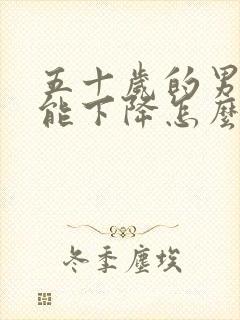 五十歲的男
能下降怎麼
冬季塵埃